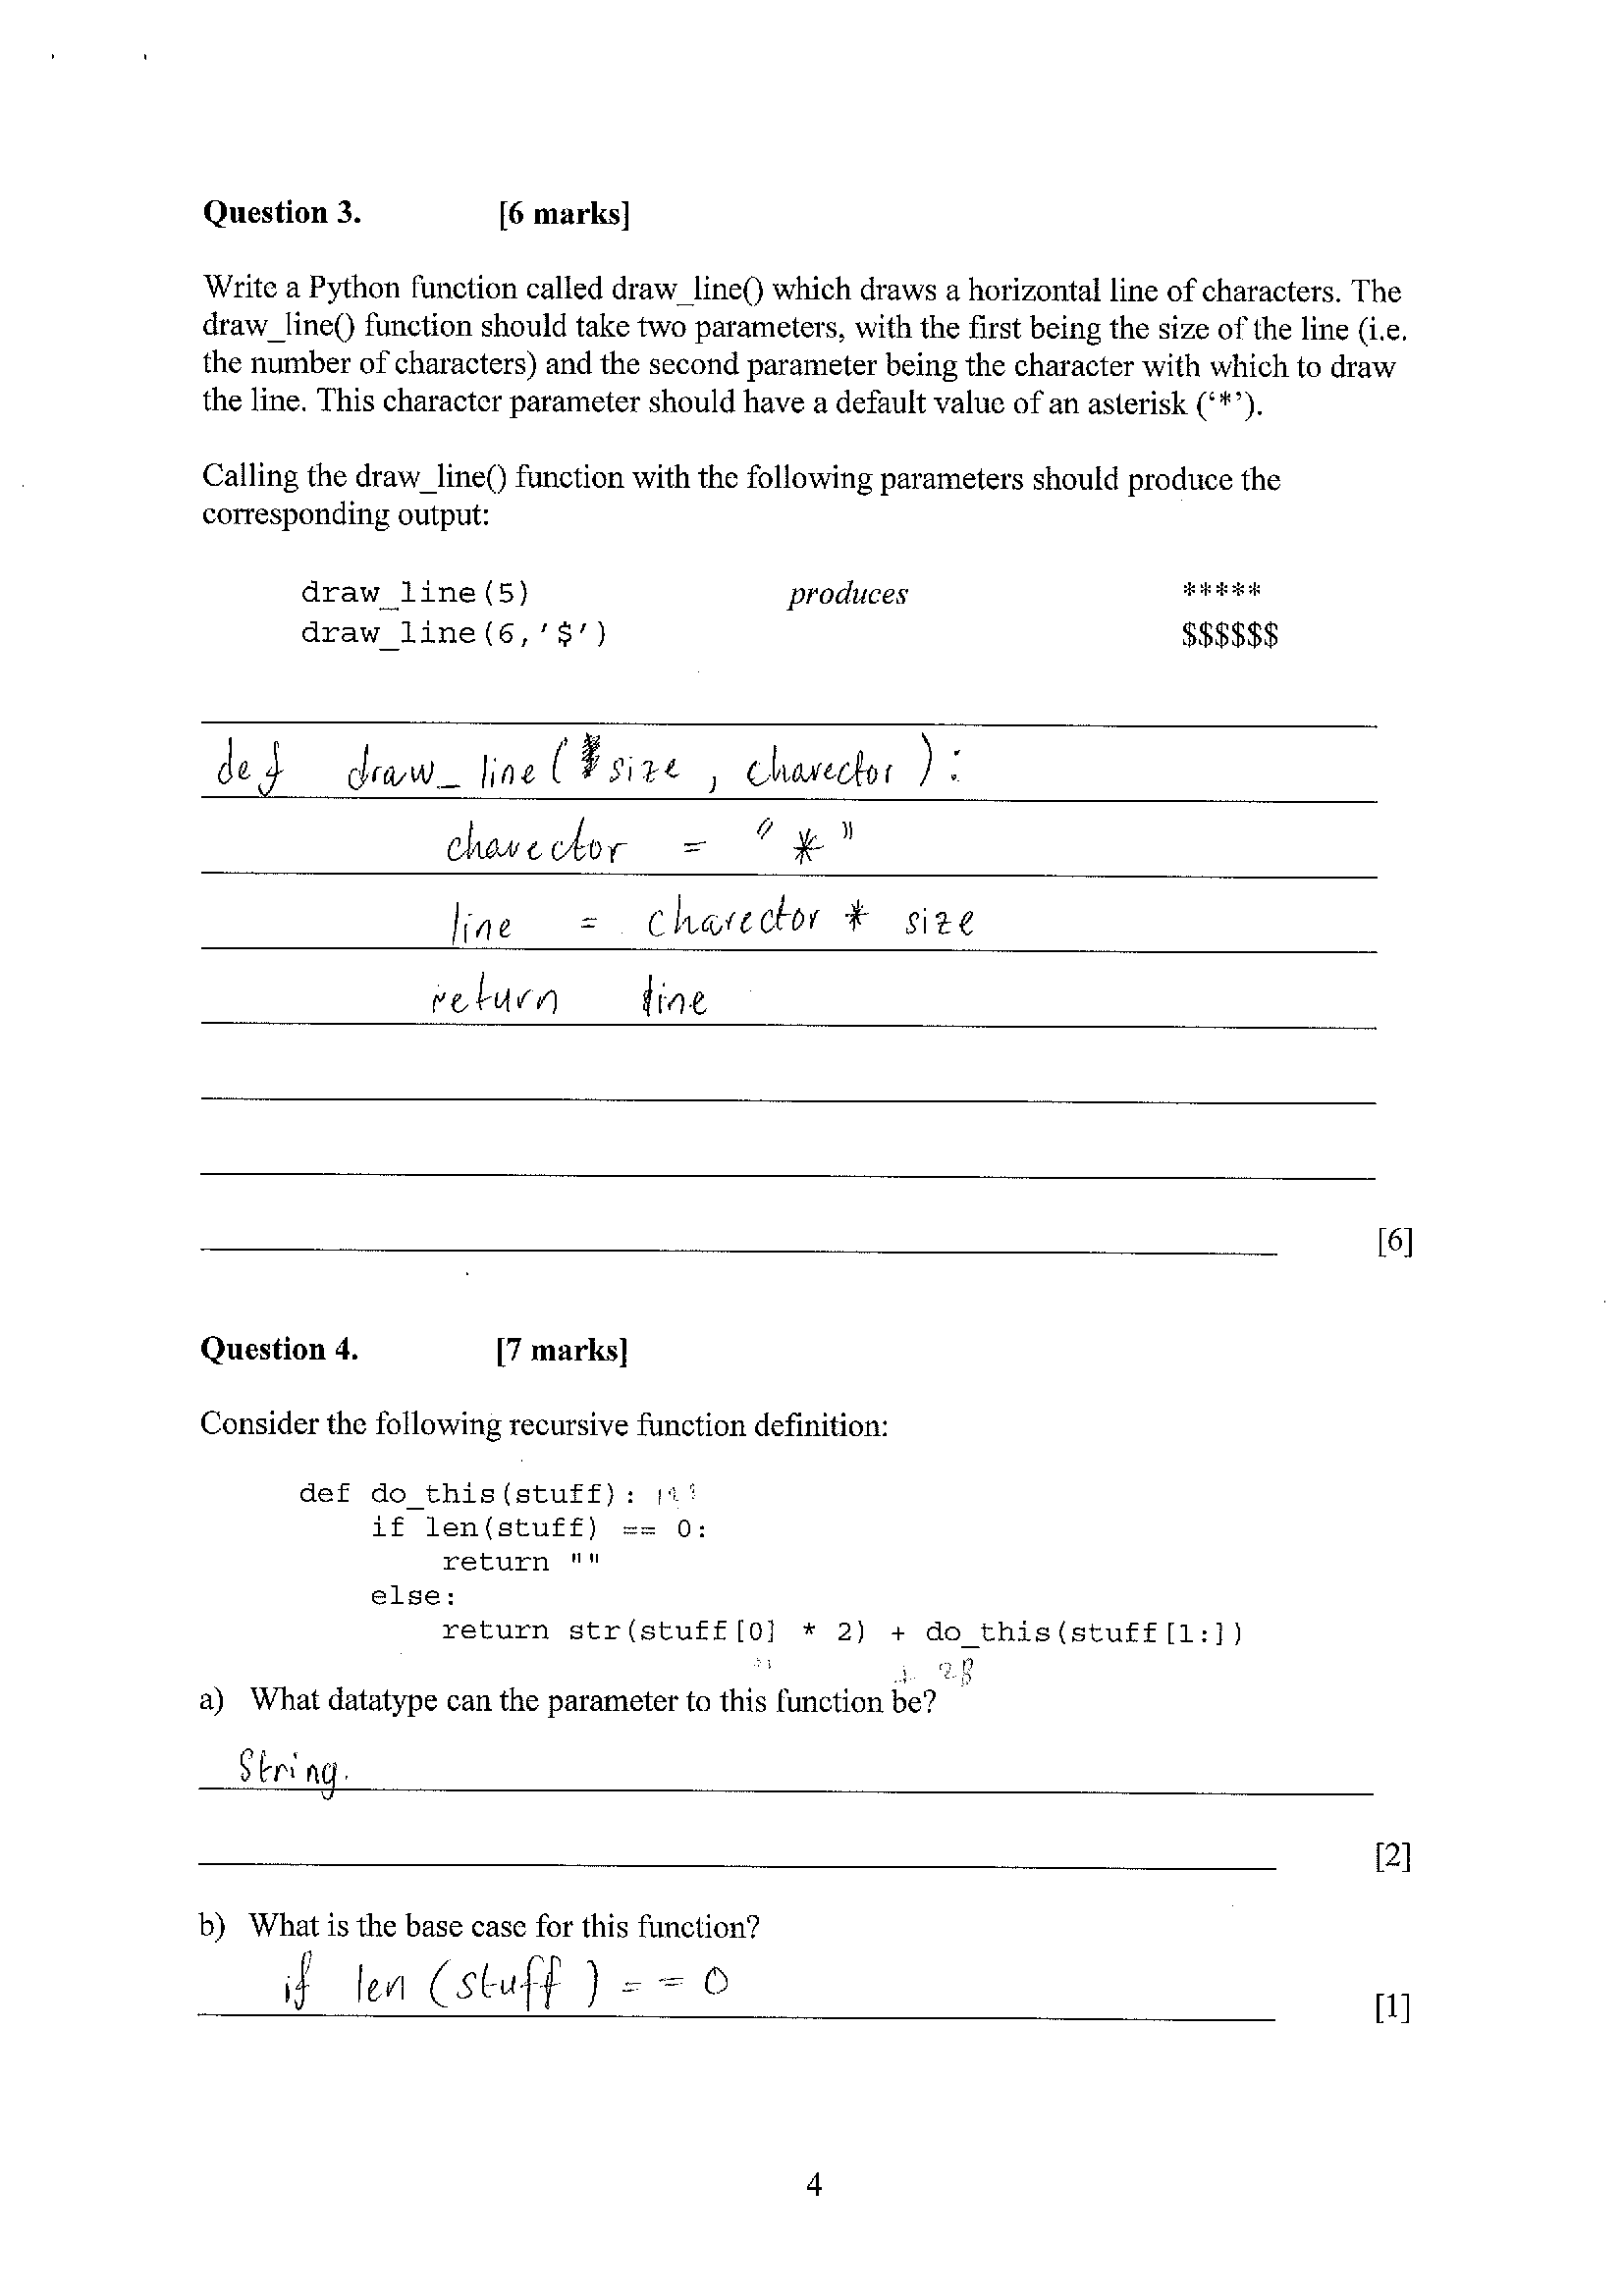 Question 3. [6 marks]
Write a Python function called draw_line() which draws a horizontal line of characters. The
draw_line() function should take two parameters, with the first being the size of the line (i.e.
the number of characters) and the second parameter being the character with which to draw
the line. This character parameter should have a default value of an asterisk (‘*’).
Calling the draw_line() function with the following parameters should produce the
corresponding output:
draw_line(5) produces *****
draw_line(6,'$') $$$$$$
def draw_line( size , charector ):
charector = "*"
line = charector * size
return line
[6]
Question 4. [7 marks]
Consider the following recursive function definition:
def do_this(stuff):
if len(stuff) == 0:
return ""
else:
return str(stuff[0] * 2) + do_this(stuff[1:])
a) What datatype can the parameter to this function be?
String.
[2]
b) What is the base case for this function?
if len (stuff ) == 0
[1]
4